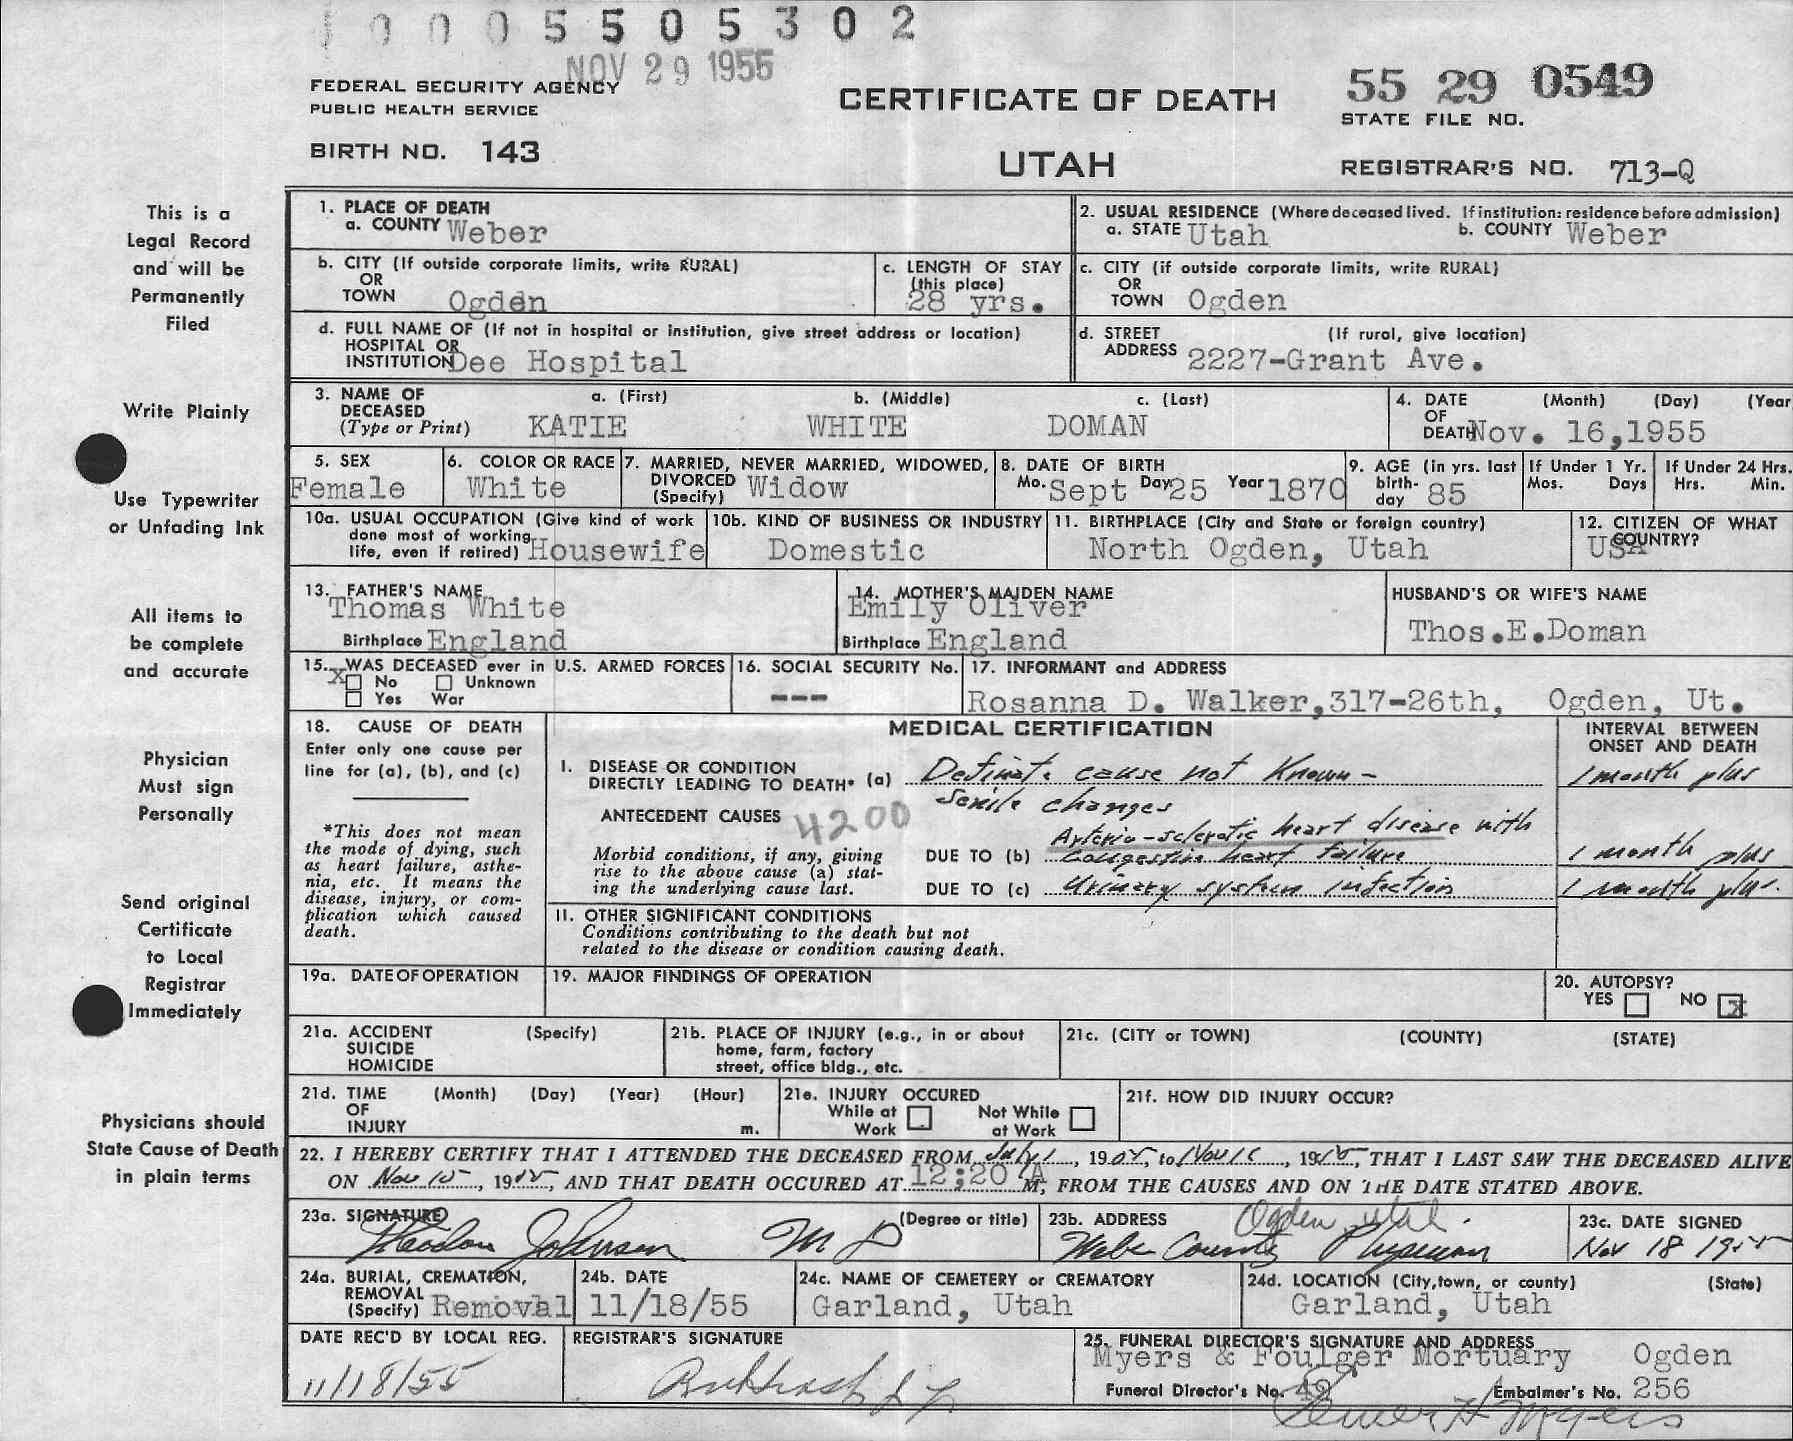 0005505302
NOV 29 1955
FEDERAL SECURITY AGENCY
PUBLIC HEALTH SERVICE
CERTIFICATE OF DEATH
55 29 0549
STATE FILE NO.
BIRTH NO. 143
UTAH
REGISTRAR'S NO. 713-Q
This is a
Legal Record
and will be
Permanently
Filed
Write Plainly
Use Typewriter
or Unfading Ink
All items to
be complete
and accurate
Physician
Must sign
Personally
Send original
Certificate
to Local
Registrar
Immediately
Physicians should
State Cause of Death
in plain terms
1. PLACE OF DEATH
a. COUNTY Weber
2. USUAL RESIDENCE (Where deceased lived. If institution: residence before admission)
a. STATE Utah b. COUNTY Weber
b. CITY (If outside corporate limits, write RURAL)
OR
TOWN Ogden
c. LENGTH OF STAY
(this place)
28 yrs.
c. CITY (if outside corporate limits, write RURAL)
OR
TOWN Ogden
d. FULL NAME OF (If not in hospital or institution, give street address or location)
HOSPITAL OR
INSTITUTION Dee Hospital
d. STREET (If rural, give location)
ADDRESS 2227-Grant Ave.
3. NAME OF a. (First) b. (Middle) c. (Last)
DECEASED
(Type or Print) KATIE WHITE DOMAN
4. DATE (Month) (Day) (Year
OF
DEATH Nov. 16,1955
5. SEX
Female
6. COLOR OR RACE
White
7. MARRIED, NEVER MARRIED, WIDOWED,
DIVORCED
(Specify) Widow
8. DATE OF BIRTH
Mo. Sept Day 25 Year 1870
9. AGE (in yrs. last
birth-
day 85
If Under 1 Yr.
Mos. Days
If Under 24 Hrs.
Hrs. Min.
10a. USUAL OCCUPATION (Give kind of work
done most of working
life, even if retired) Housewife
10b. KIND OF BUSINESS OR INDUSTRY
Domestic
11. BIRTHPLACE (City and State or foreign country)
North Ogden, Utah
12. CITIZEN OF WHAT
COUNTRY?
USA
13. FATHER'S NAME
Thomas White
Birthplace England
14. MOTHER'S MAIDEN NAME
Emily Oliver
Birthplace England
HUSBAND'S OR WIFE'S NAME
Thos.E.Doman
15. WAS DECEASED ever in U.S. ARMED FORCES
X No Unknown
Yes War
16. SOCIAL SECURITY No.
---
17. INFORMANT and ADDRESS
Rosanna D. Walker,317-26th, Ogden, Ut.
18. CAUSE OF DEATH
Enter only one cause per
line for (a), (b), and (c)
*This does not mean
the mode of dying, such
as heart failure, asthe-
nia, etc. It means the
disease, injury, or com-
plication which caused
death.
MEDICAL CERTIFICATION
INTERVAL BETWEEN
ONSET AND DEATH
I. DISEASE OR CONDITION
DIRECTLY LEADING TO DEATH* (a) Definite cause not Known - 1 month plus
Senile changes
ANTECEDENT CAUSES 4200
Arterio-sclerotic heart disease with
Morbid conditions, if any, giving
rise to the above cause (a) stat-
ing the underlying cause last.
DUE TO (b) congestive heart failure 1 month plus
DUE TO (c) Urinary system infection 1 month plus.
II. OTHER SIGNIFICANT CONDITIONS
Conditions contributing to the death but not
related to the disease or condition causing death.
19a. DATE OF OPERATION
19. MAJOR FINDINGS OF OPERATION
20. AUTOPSY?
YES NO X
21a. ACCIDENT (Specify)
SUICIDE
HOMICIDE
21b. PLACE OF INJURY (e.g., in or about
home, farm, factory
street, office bldg., etc.
21c. (CITY or TOWN) (COUNTY) (STATE)
21d. TIME (Month) (Day) (Year) (Hour)
OF
INJURY m.
21e. INJURY OCCURED
While at Work Not While at Work
21f. HOW DID INJURY OCCUR?
22. I HEREBY CERTIFY THAT I ATTENDED THE DECEASED FROM July 1, 1955, to Nov 16, 1955, THAT I LAST SAW THE DECEASED ALIVE
ON Nov 15, 1955, AND THAT DEATH OCCURED AT 12:20 A M, FROM THE CAUSES AND ON THE DATE STATED ABOVE.
23a. SIGNATURE (Degree or title)
Johnson M D
23b. ADDRESS Ogden, Utah.
Weber County Physician
23c. DATE SIGNED
Nov 18 1955
24a. BURIAL, CREMATION,
REMOVAL
(Specify) Removal
24b. DATE
11/18/55
24c. NAME OF CEMETERY or CREMATORY
Garland, Utah
24d. LOCATION (City,town, or county) (State)
Garland, Utah
DATE REC'D BY LOCAL REG.
11/18/55
REGISTRAR'S SIGNATURE
25. FUNERAL DIRECTOR'S SIGNATURE AND ADDRESS
Myers & Foulger Mortuary Ogden
Funeral Director's No. 49 Embalmer's No. 256
Elmer H Myers